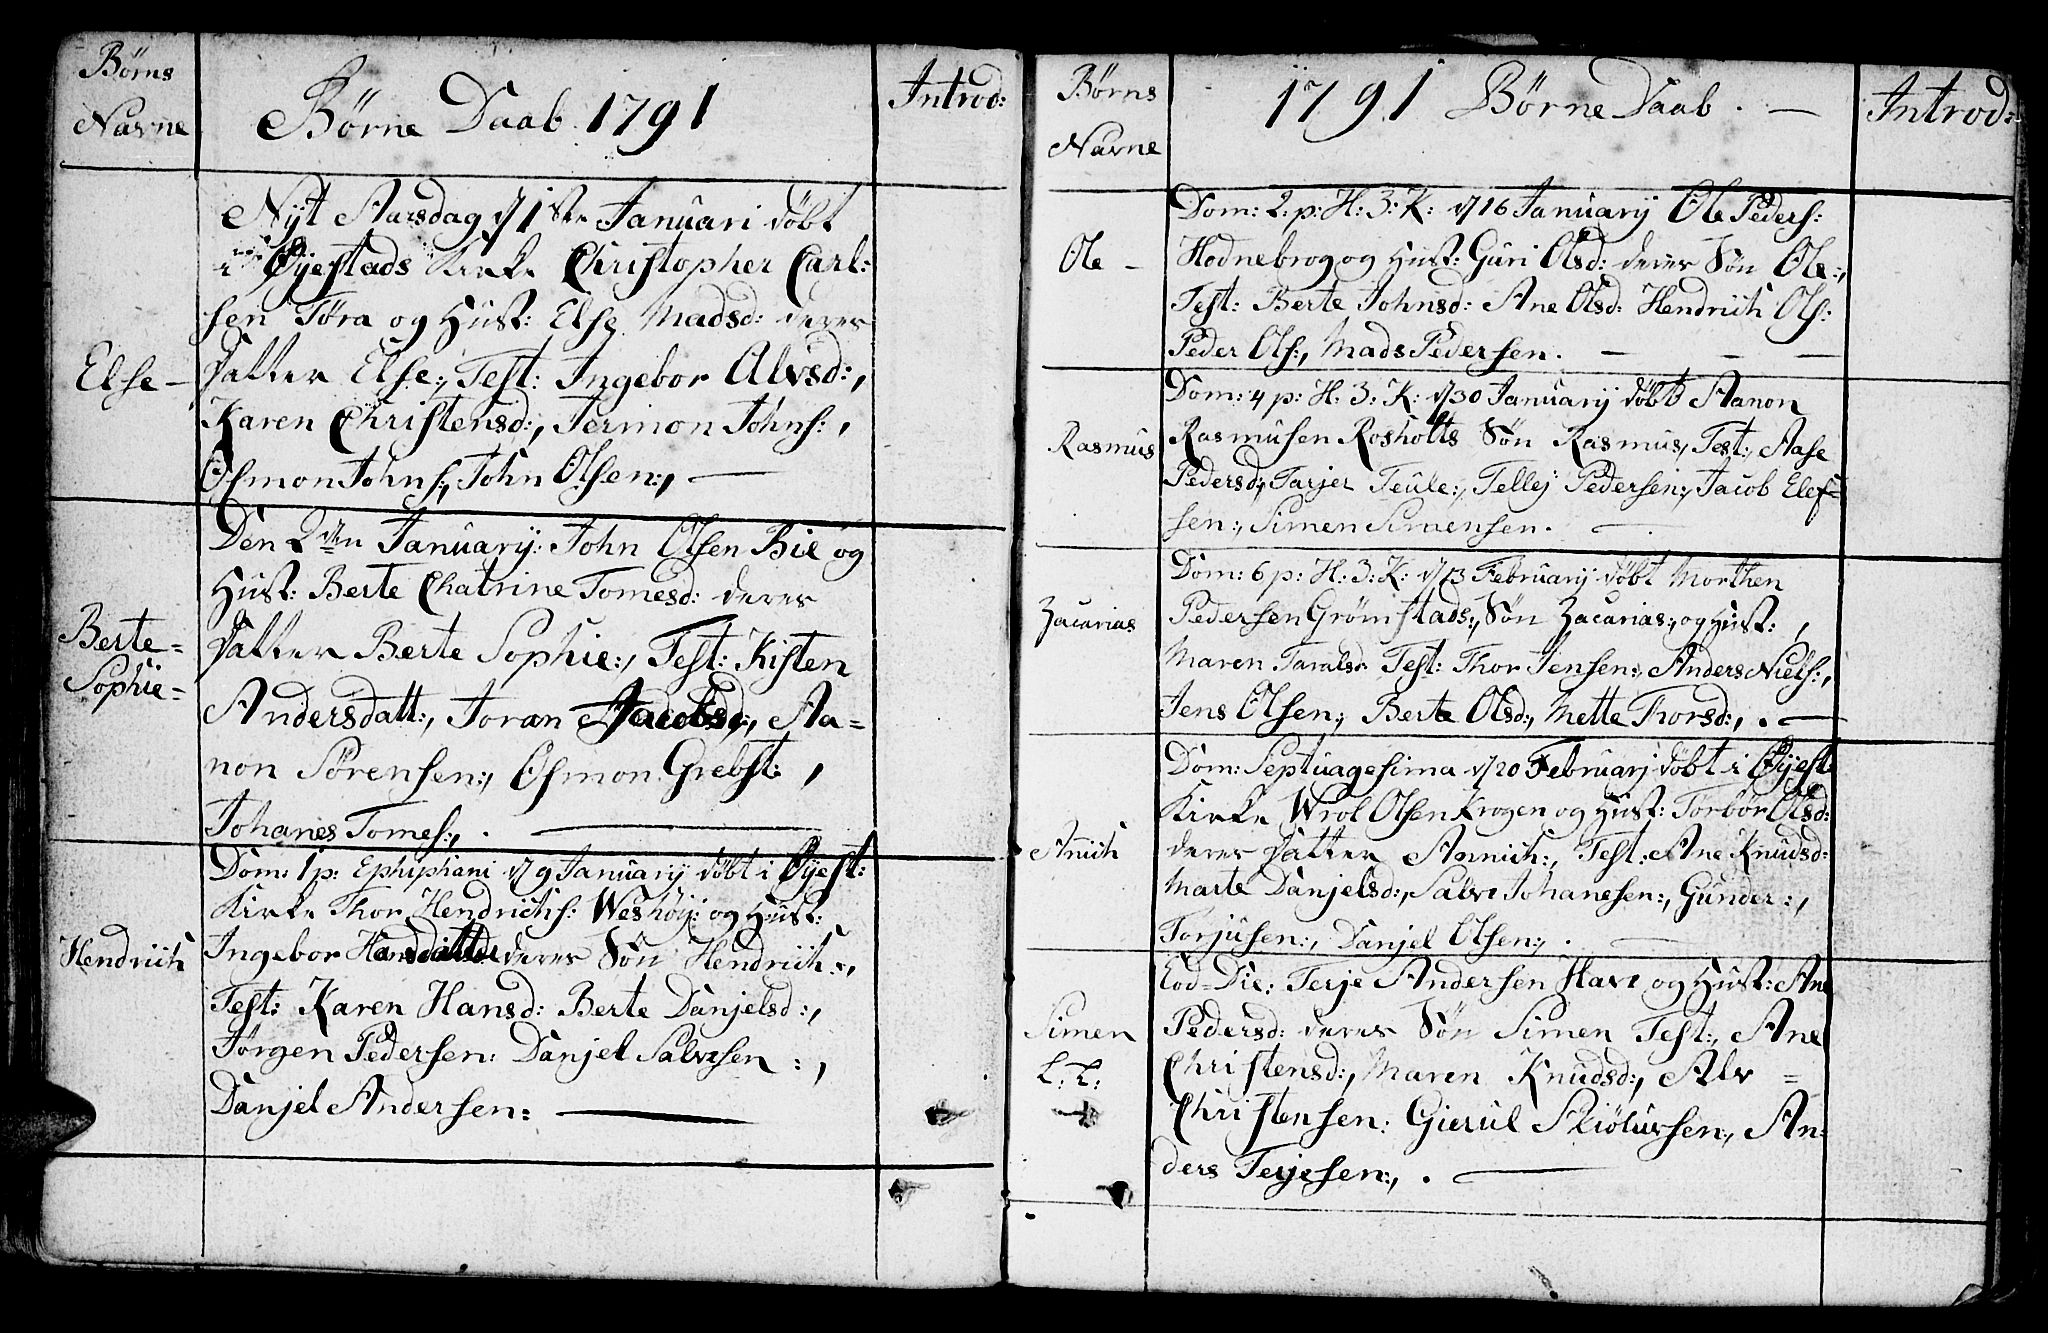 Børns
Navne
Børne Daab 1791
Introd:
Else –
Nyt Aarsdag d/1ste Januari døbt
i Øyestads Kirke Christopher Carl:
sen Tøra og Hust: Else Madsd: deres
Datter Else:, Test: Ingebor Alvsd:,
Karen Christensd:, Jermon Johns:,
Osmon Johns:, John Olsen:, —
Berte=
Sophie=
Den 2den January: John Olsen Bie og
Hust: Berte Chatrine Tomesd: deres
Datter Berte Sophie:, Test: Kisten
Andersdatt:, Joran Jacobsd:, Aa=
non Sørensen:, Osmon Grebst:,
Johanes Tomes:, . —
Hendrich
Dom: 1 p: Ephiphani d/9 January døbt i Øyest:
Kirke Thor Hendrichs: Weshøy: og Hust:
Ingebor deres Søn Hendrich:,
Test: Karen Hansd: Berte Danjelsd:,
Jørgen Pedersen: Danjel Salvesen :,
Danjel Andersen: —
Børns
Navne
1791 Børne Daab . —
Introd:
Ole –
Dom: 2. p: H: 3: K: d/16 January Ole Peders:
Hodnebrog og Hust: Guri Olsd: deres Søn Ole:,
Test: Berte Johnsd: Ane Olsd: Hendrich Ols:
Peder Ols:, Mads Pedersen. — — —
Rasmus
Dom: 4 p: H: 3: K: d/30 January døbt Aanon
Rasmusen Rosholts Søn Rasmus, Test:, Aase
Pedersd:, Tarjer Teule:, Tellej Pedersen:, Jacob Elef=
sen:, Simen Simensen. —
Zacarias
Dom: 6 p: H: 3: K: d/13 February døbt Morthen
Pedersen Grømstads:, Søn Zacarias:, og Hust:,
Maren Taralsd: Test: Thor Jensen:, Anders Niels:,
Jens Olsen:, Berte Olsd:, Mette Thorsd:, . —
Anich
Dom: Septuagesima d/20 February døbt i Øyest:
Kirke Wrol Olsen Krogen og Hust: Torbor Olsd:
deres Datter Annich:, Test: Ane Knudsd:
Marte Danjelsd:, Salve Johanesen:, Gunder:,
Torjusen:, Danjel Olsen:, . —
Simen
Eod=Die: Terje Andersen Have og Hust: Ane
Pedersd: deres Søn Simen Test:, Ane
Christensd:, Maren Knudsd:, Alv =
Christensen: Gierul Skiøluvsen:, An=
ders Terjesen:, . —